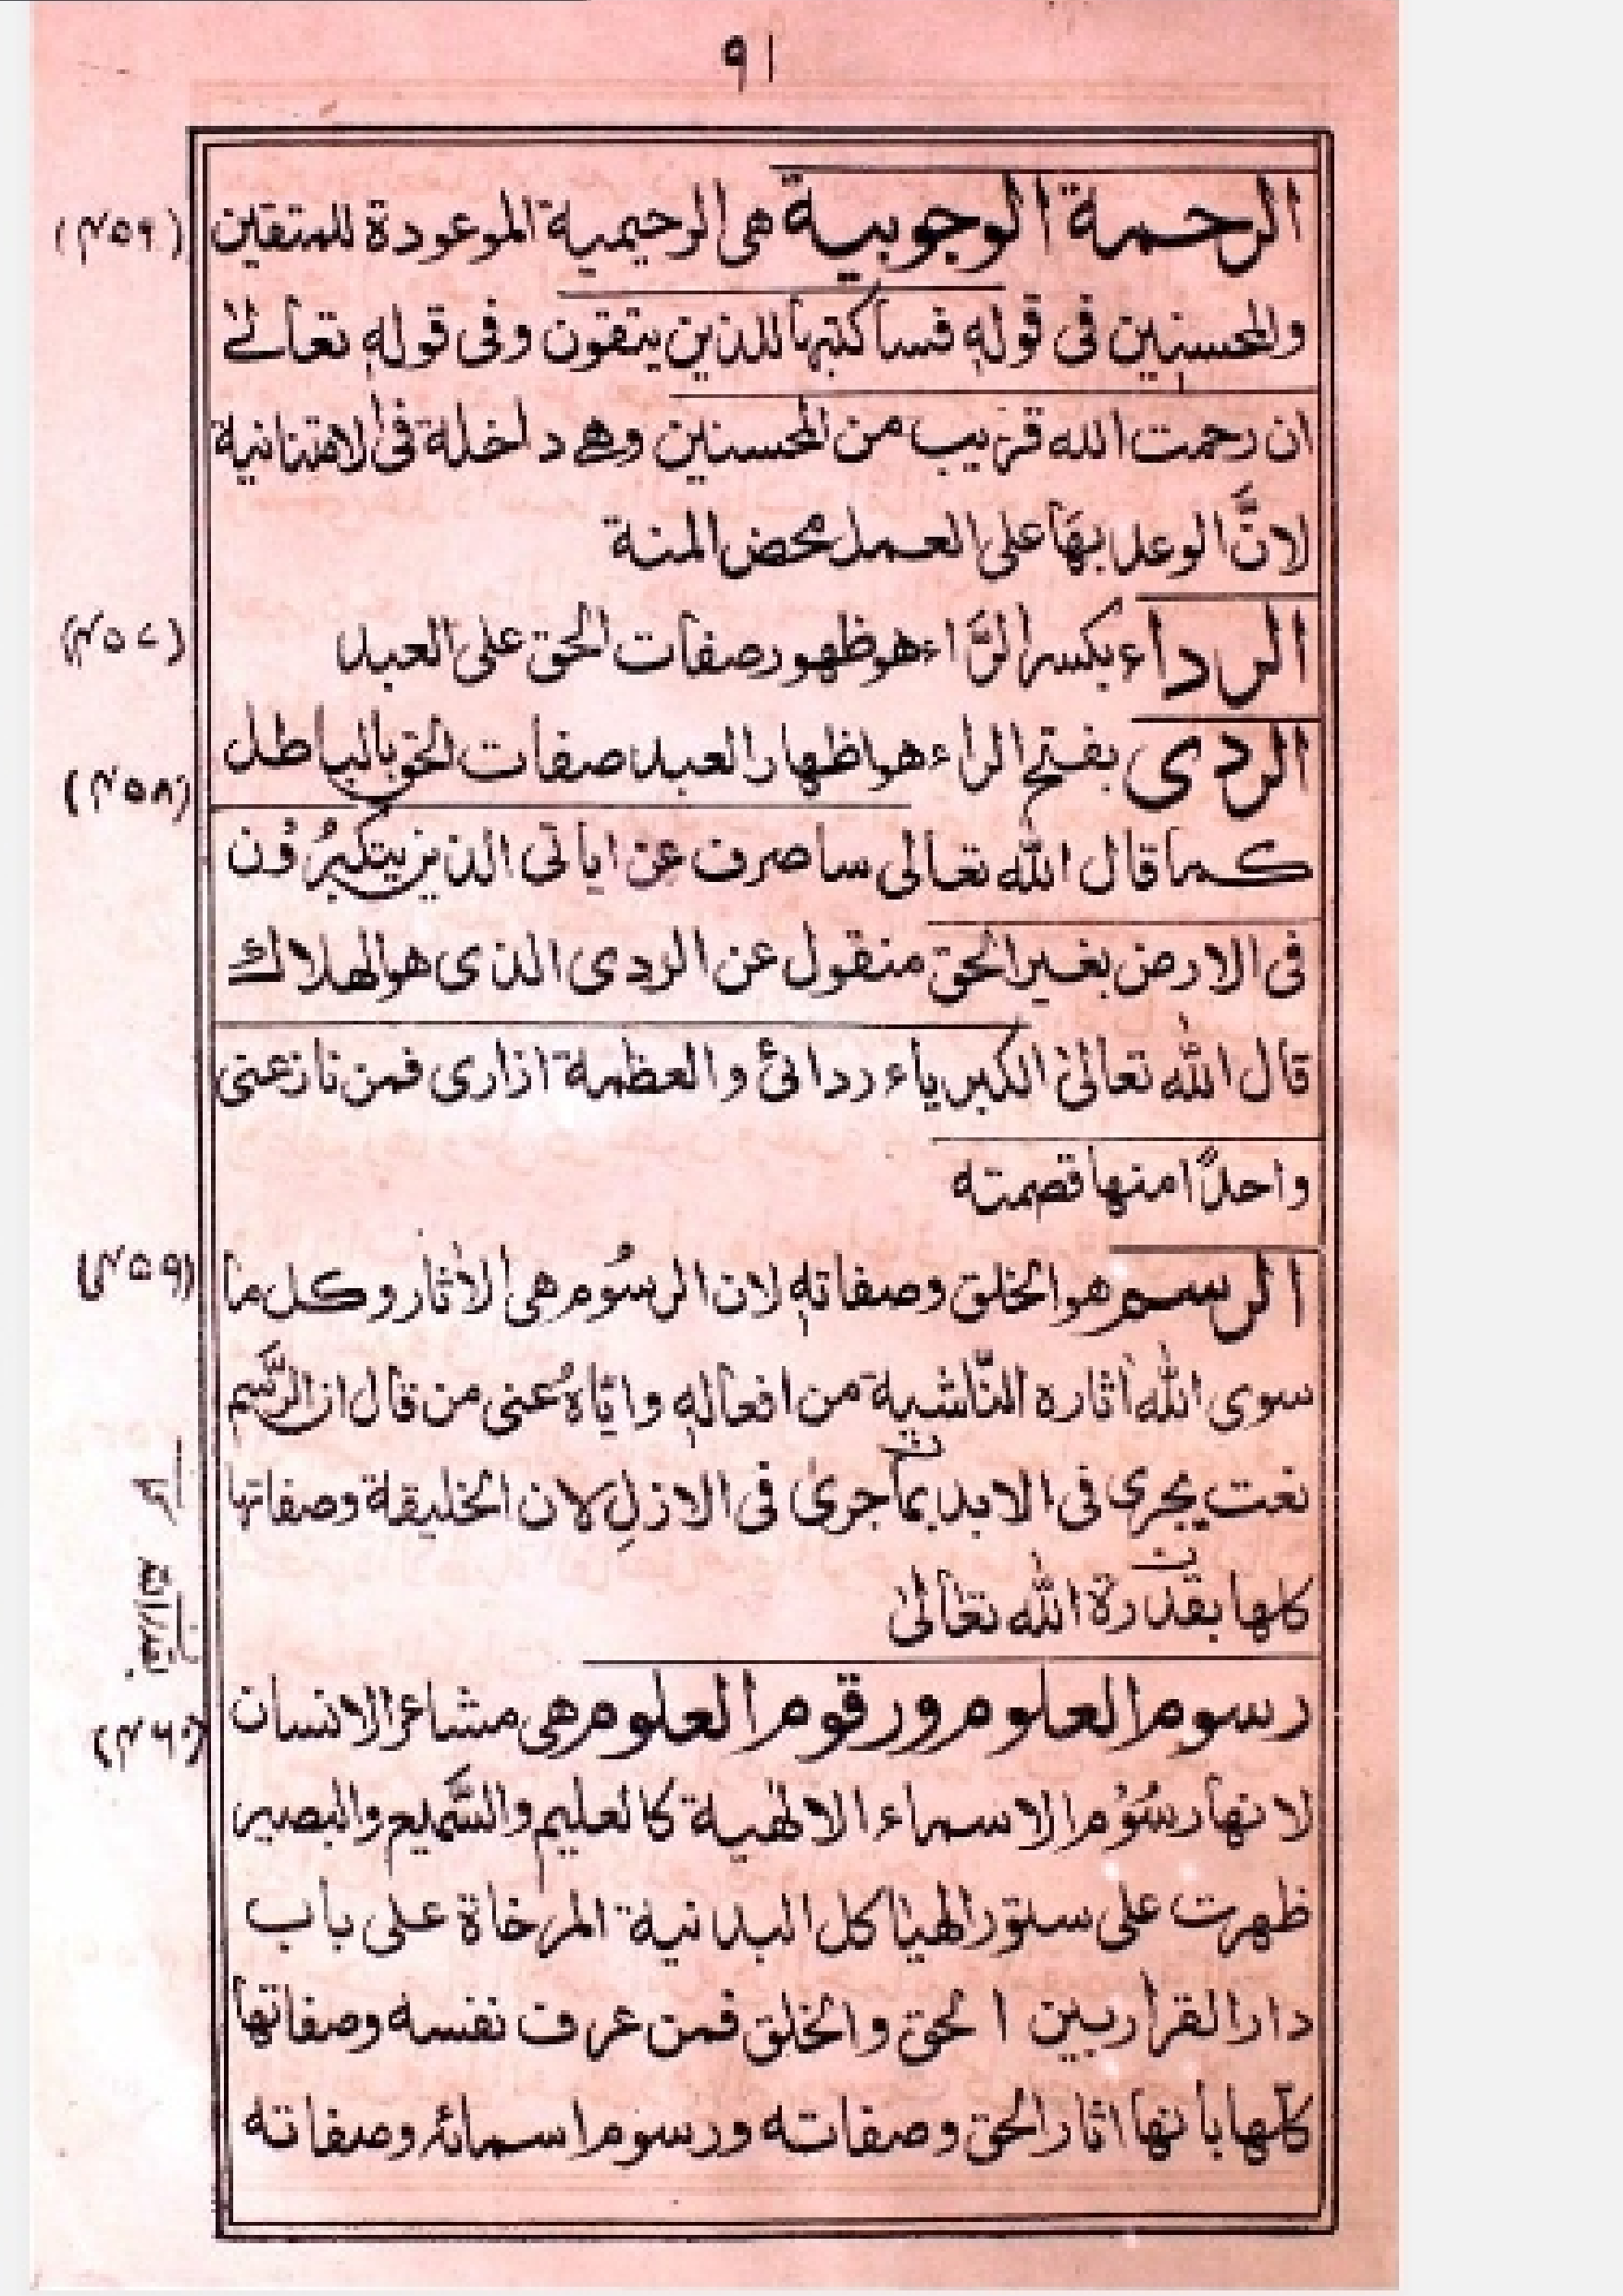 ٩١
الرحمة الوجوبية هى الرحيمية الموعودة للمتقين (٤٥٦)
والمحسنين فى قوله فسأكتبها للذين يتقون وفى قوله تعالىٰ
ان رحمت الله قريب من المحسنين وهے داخلة فى الامتنانية
لانَّ الوعد بهَا على العمل محض المنة
الرداء بكسر الرَّاء هو ظهور صفات الحق على العبد (٤٥٧)
الردى بفتح الراء هو اظهار العبد صفات الحق بالباطل (٤٥٨)
كما قال الله تعالى ساصرف عن اياتى الذين يتكبرُوْن
فى الارض بغير الحق منقول عن الردى الذى هو الهلاك
قال الله تعالىٰ الكبرياء ردائى والعظمة ازارى فمن نازعنى
واحدًا منها قصمته
الرسم هو الخلق وصفاته لان الرسُوم هى الأثار وكل ما (٤٥٩)
سوى الله اٰثاره النّاشية من افعاله وايّاه عنى من قال ان الرَّسم
نعت يجرى فى الابد بما جرىٰ فى الازلِ لان الخليقة وصفاتها
كلها بقدرة الله تعالىٰ
رسوم العلوم ورقوم العلوم هى مشاعر الانسان (٤٦٠)
لانها رسُوْم الاسماء الالٰهية كالعليم والسَّميع والبصير
ظهرت على ستور الهياكل البدنية المرخاة على باب
دار القرار بين الحق والخلق فمن عرف نفسه وصفاتها
كلّها بأنها اثار الحق وصفاته ورسوم اسمائهٖ وصفاته